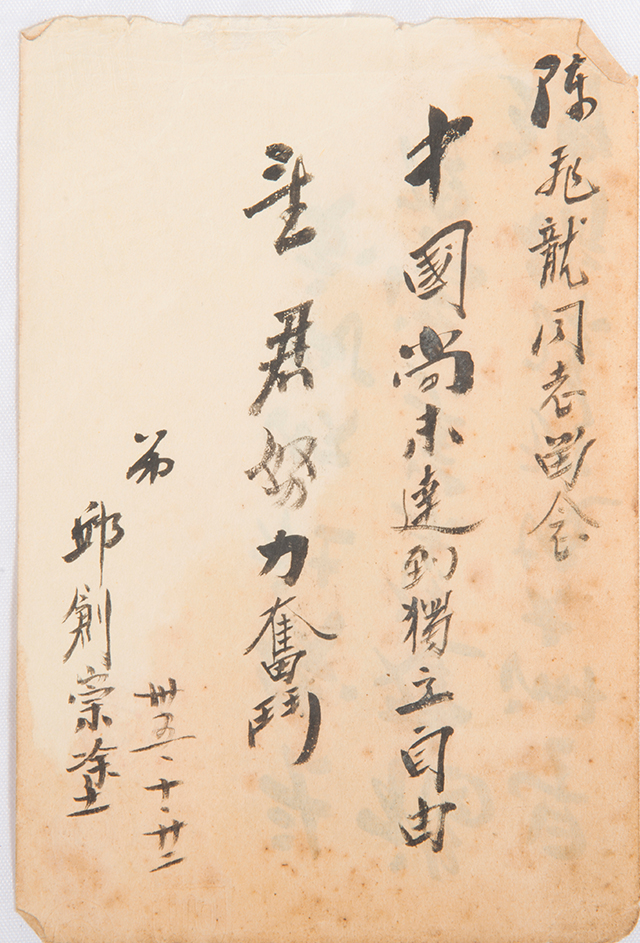 陈飛龍同志留念
中國尚未達到獨立自由
望君努力奮鬥
弟
邱創宗塗
卅五、十、廿二